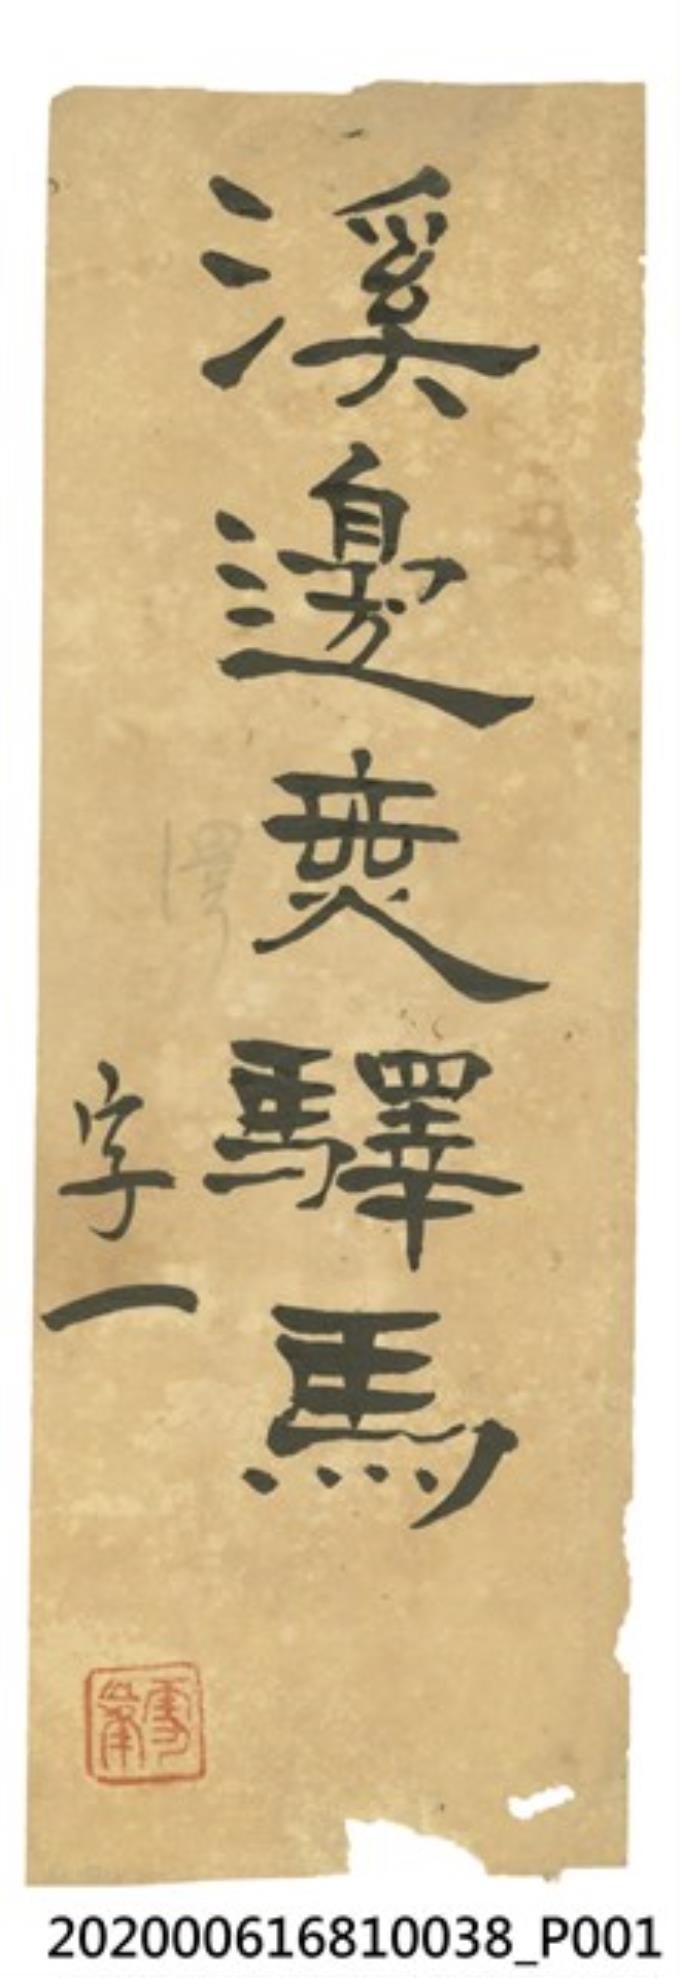 溪邊喪驛馬
澤
字一
雪峯
202000616810038_P001